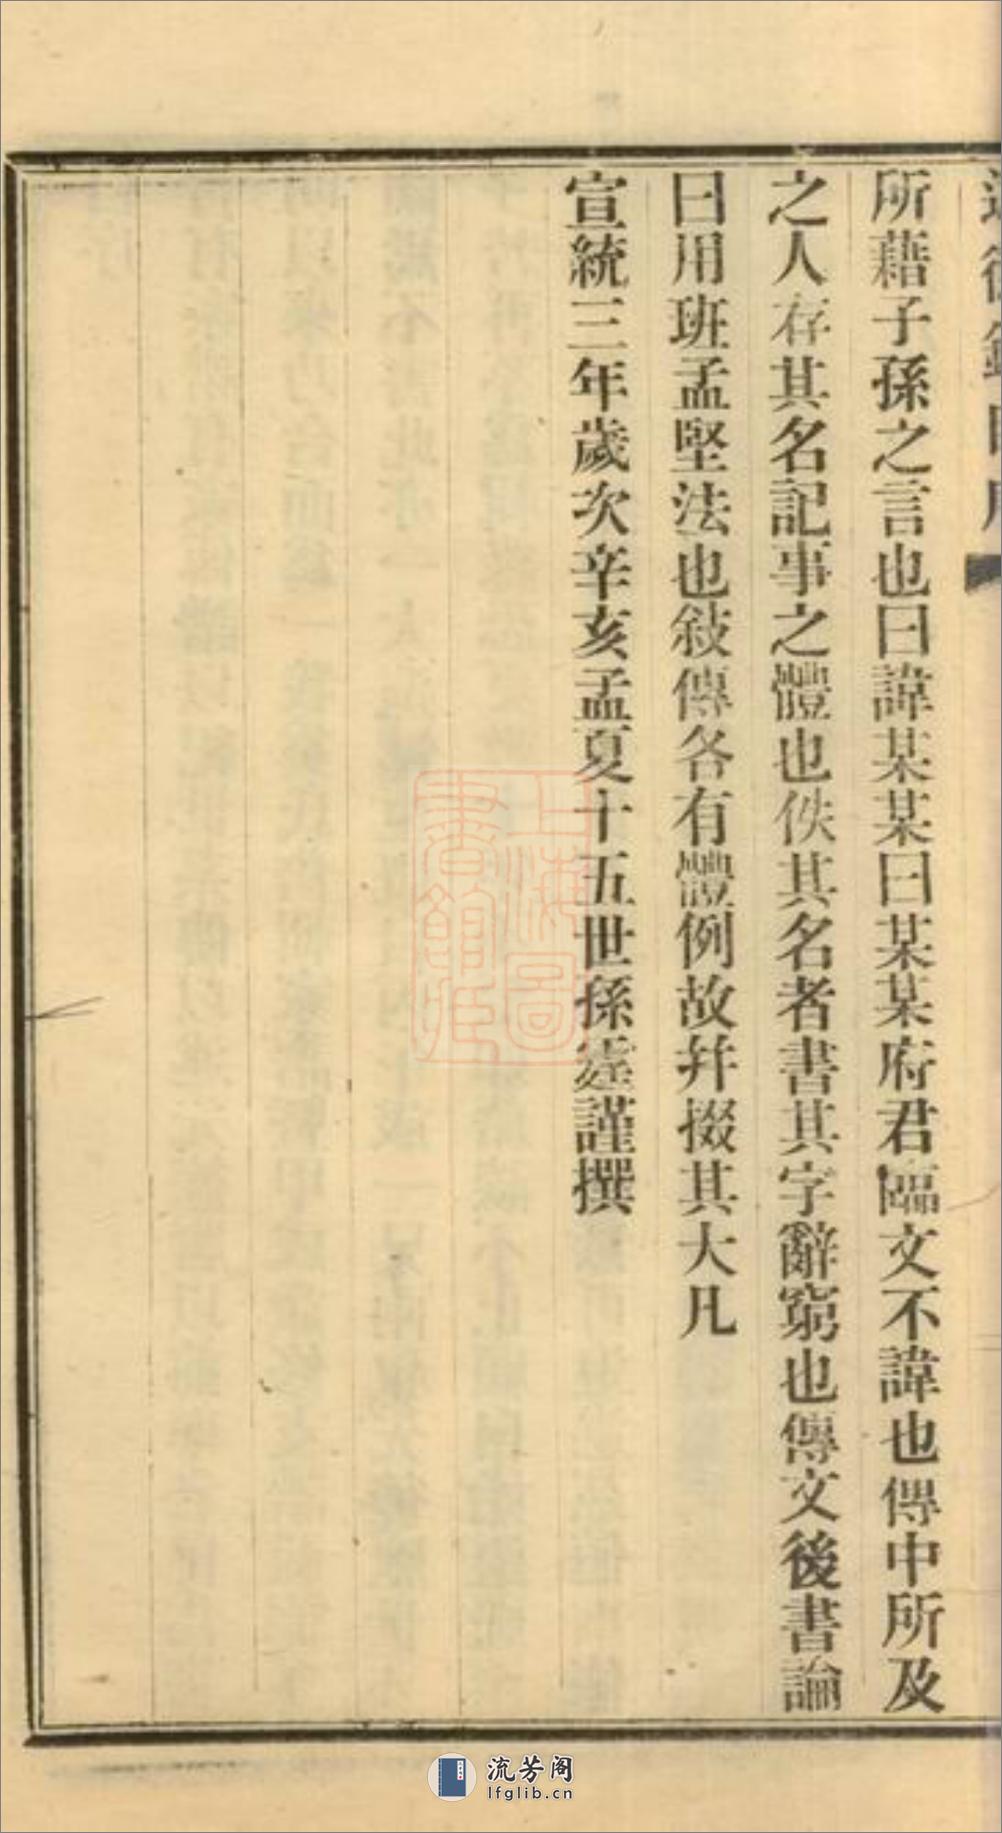 所藉子孫之言也曰諱某某曰某某府君臨文不諱也傳中所及
之人存其名記事之體也佚其名者書其字辭窮也傳文後書論
曰用班孟堅法也敍傳各有體例故幷掇其大凡
宣統三年歲次辛亥孟夏十五世孫霆謹撰
上海圖書館藏
流芳阁
lfglib.cn